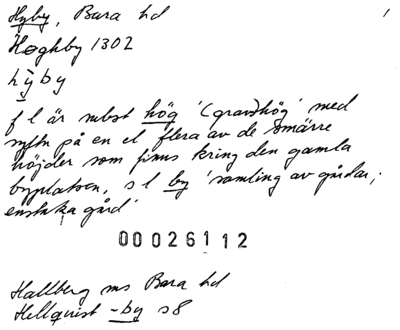 Hyby, Bara hd
Høghby 1302
hỳby
f l är subst hög '(grav)hög' med
syftn på en el flera av de smärre
höjder som finns kring den gamla
byplatsen, s l by 'samling av gårdar;
enstaka gård'
00 026112
Hallberg ms Bara hd
Hellquist -by s 8